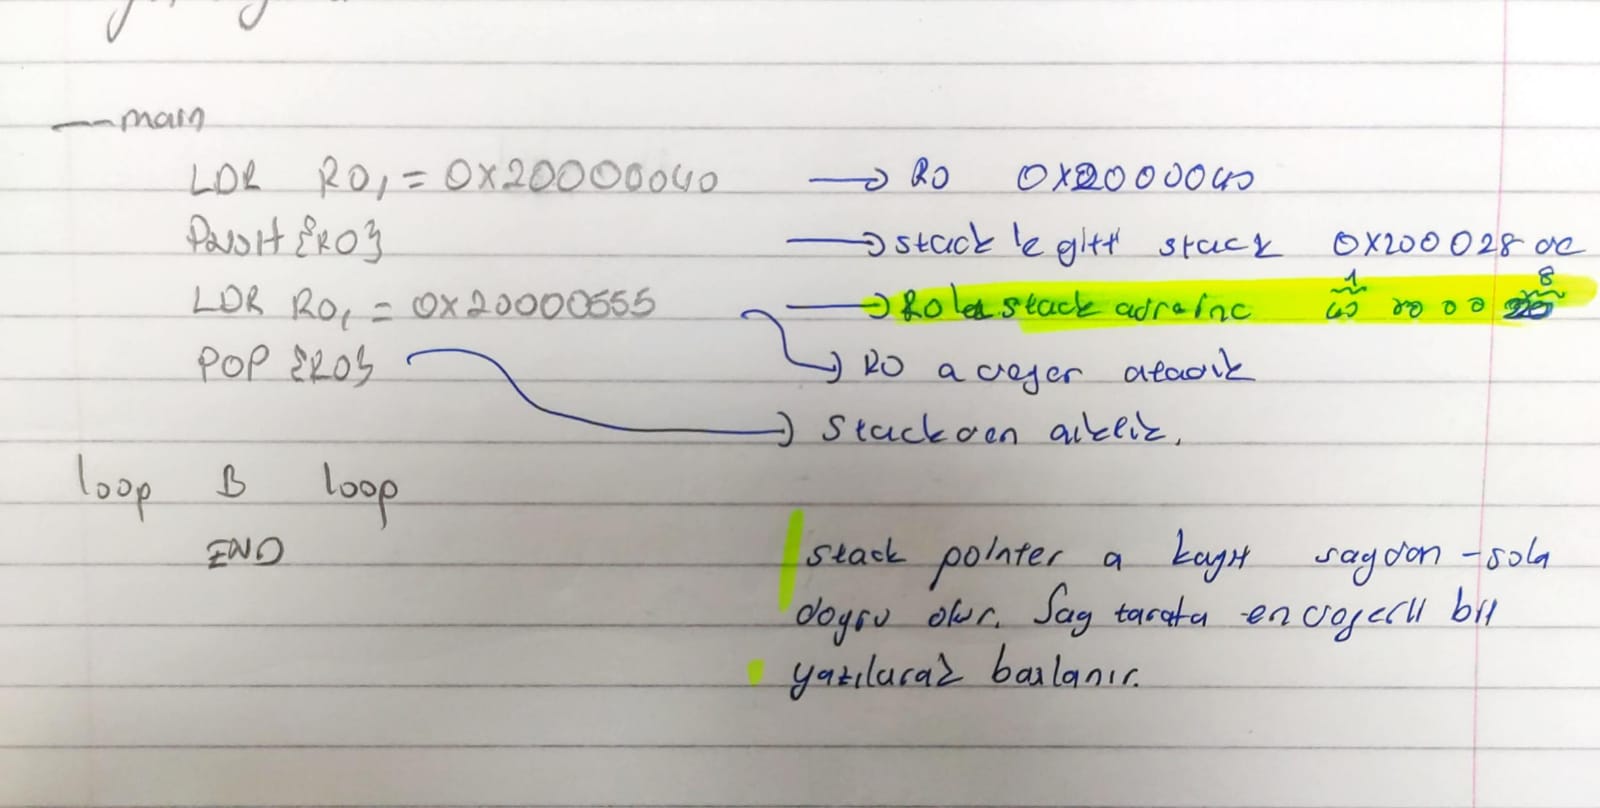 __main
LDR R0, = 0x20000040 → R0 0x2000040
PUSH {R0} → stack 'e gitti stack 0x200028
LDR R0, = 0x20000555 → R0 stack adresine 40 00 00 20
1 8
POP {R0} → R0 a değer atadık
→ Stackden
loop B loop
END
stack pointer a kayıt sagdan -sola
dogru olur. Sag tarafa en bit
yazılarak baslanır.